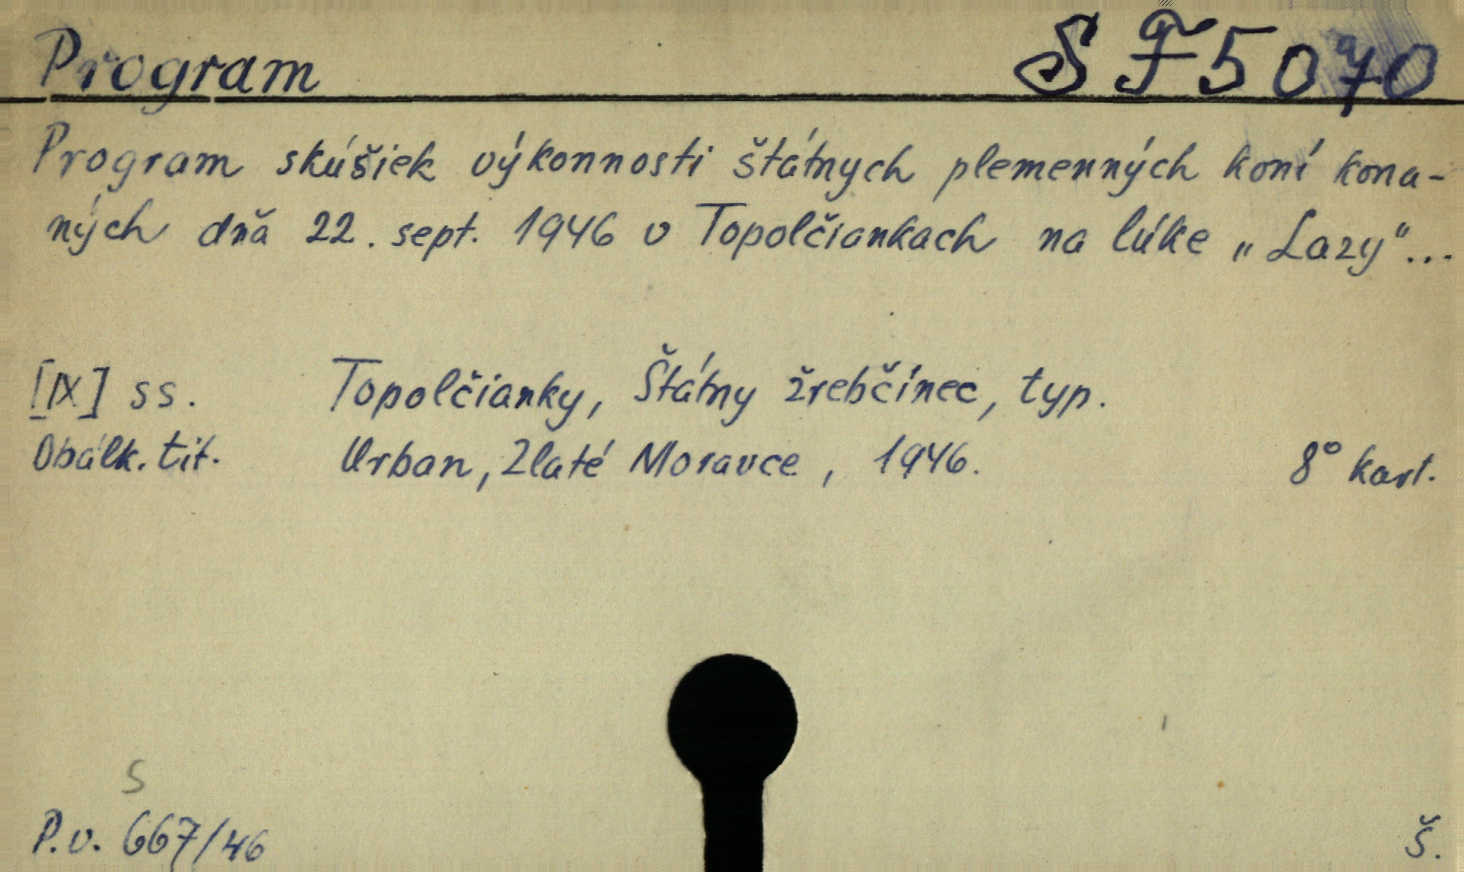 Program S F 5070
Program skúšiek výkonnosti štátnych plemenných koní kona-
ných dňa 22. sept. 1946 v Topolčiankach na lúke „Lazy"...
[IX] ss. Topolčianky, Štátny žrebčínec, typ.
Obálk. tit. Urban, Zlaté Moravce, 1946. 8° kart.
S
P.v. 667/46 Š.